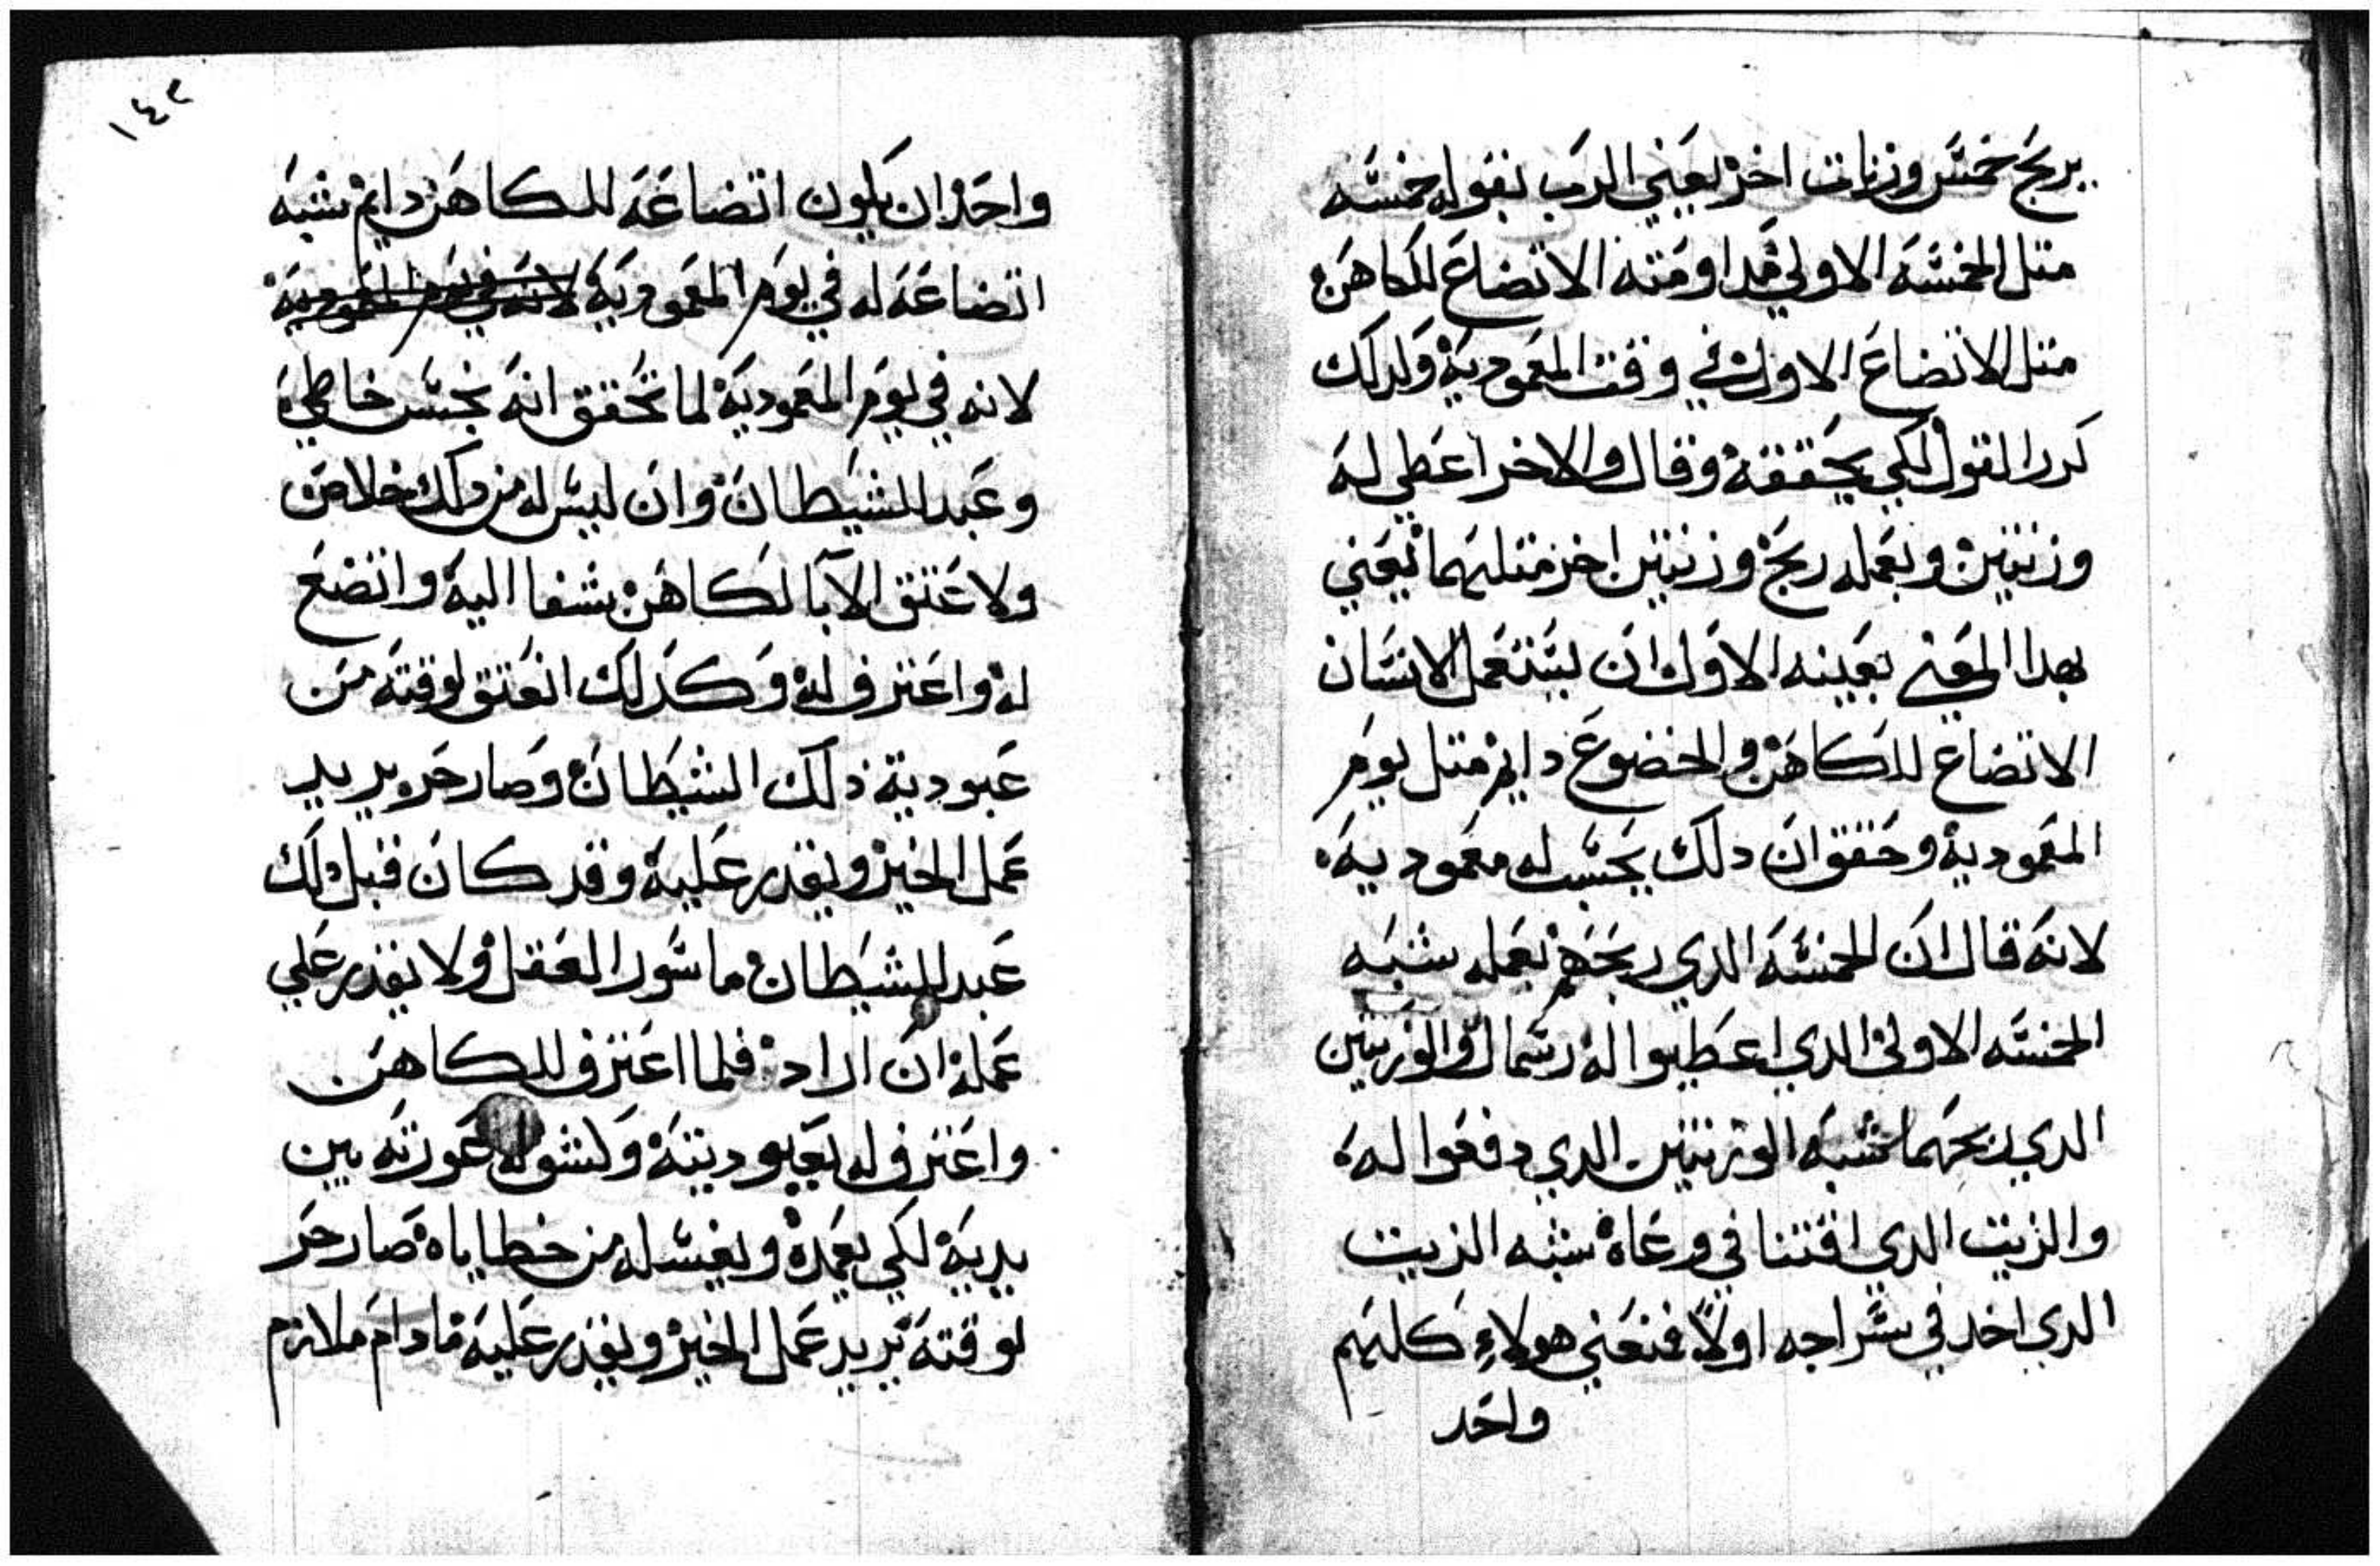 يربح خمس وزنات اخر يعني الرب بقوله خمسه
متل الخمسه الاولي مداومته الاتضاع للكاهن
متل الاتضاع الاول في وقت المعمودية ولدلك
كرر القول لكي يحققه وقال والاخر اعطي له
وزنتين وبعمله ربح وزنتين اخر متلهما يعني
بهدا المعني بعينه الاول ان يستعمل الانسان
الاتضاع للكاهن والخضوع دايم متل يوم
المعمودية وحقق ان دلك يحسب له معموديه
لانه قال ان الخمسه الدي ربحهم بعمله شبه
الخمسه الاولي الدي اعطيوا له رسمال والوزنتين
الدي ربحهما شبه الوزنتين الدي دفعوا له
والزيت الدي اقتنا في وعاه شبه الزيت
الدي اخد في سراجه اولاً فنعني هولاءِ كلهم
واحد
١٤٢
واحد ان يكون اتضاعه للكاهن دايم شبه
اتضاعه له في يوم المعمودية لانه في يوم المعمودية
لانه في يوم المعمودية لما تحقق انه نجس خاطي
وعبد للشيطان وان ليس له من دلك خلاص
ولا عتق الا بالكاهن شفا اليه واتضع
له واعترف له وكدلك انعتق لوقته من
عبودية ذلك الشيطان وصار حر يريد
عمل الخير ويقدر عليه وقد كان قبل دلك
عبد للشيطان ماسور العقل ولا يقدر علي
عمله ان اراد فلما اعترف للكاهن
واعترف له بعبوديته وكشف له عورته بين
يديه لكي يعمده ويغسله من خطاياه صار حر
لوقته يريد عمل الخير ويقدر عليه مادام ملازم